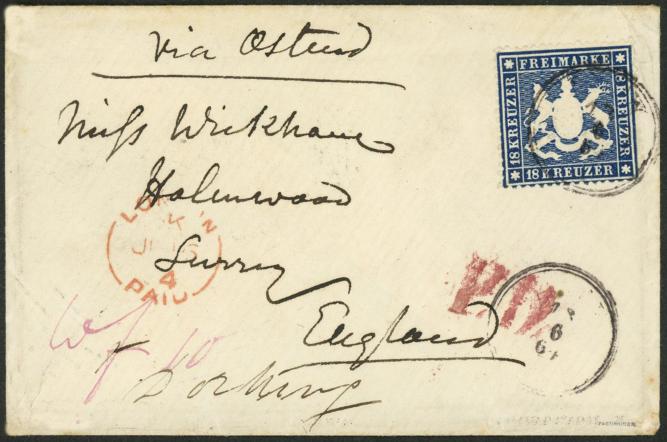 via Ostend
FREIMARKE
18 KREUZER
18 KREUZER
18 KREUZER
Miss Wickham
Holmwood
Surrey
England
Dorking
LON N
K
4
PAID
P.D.
6
wf 10